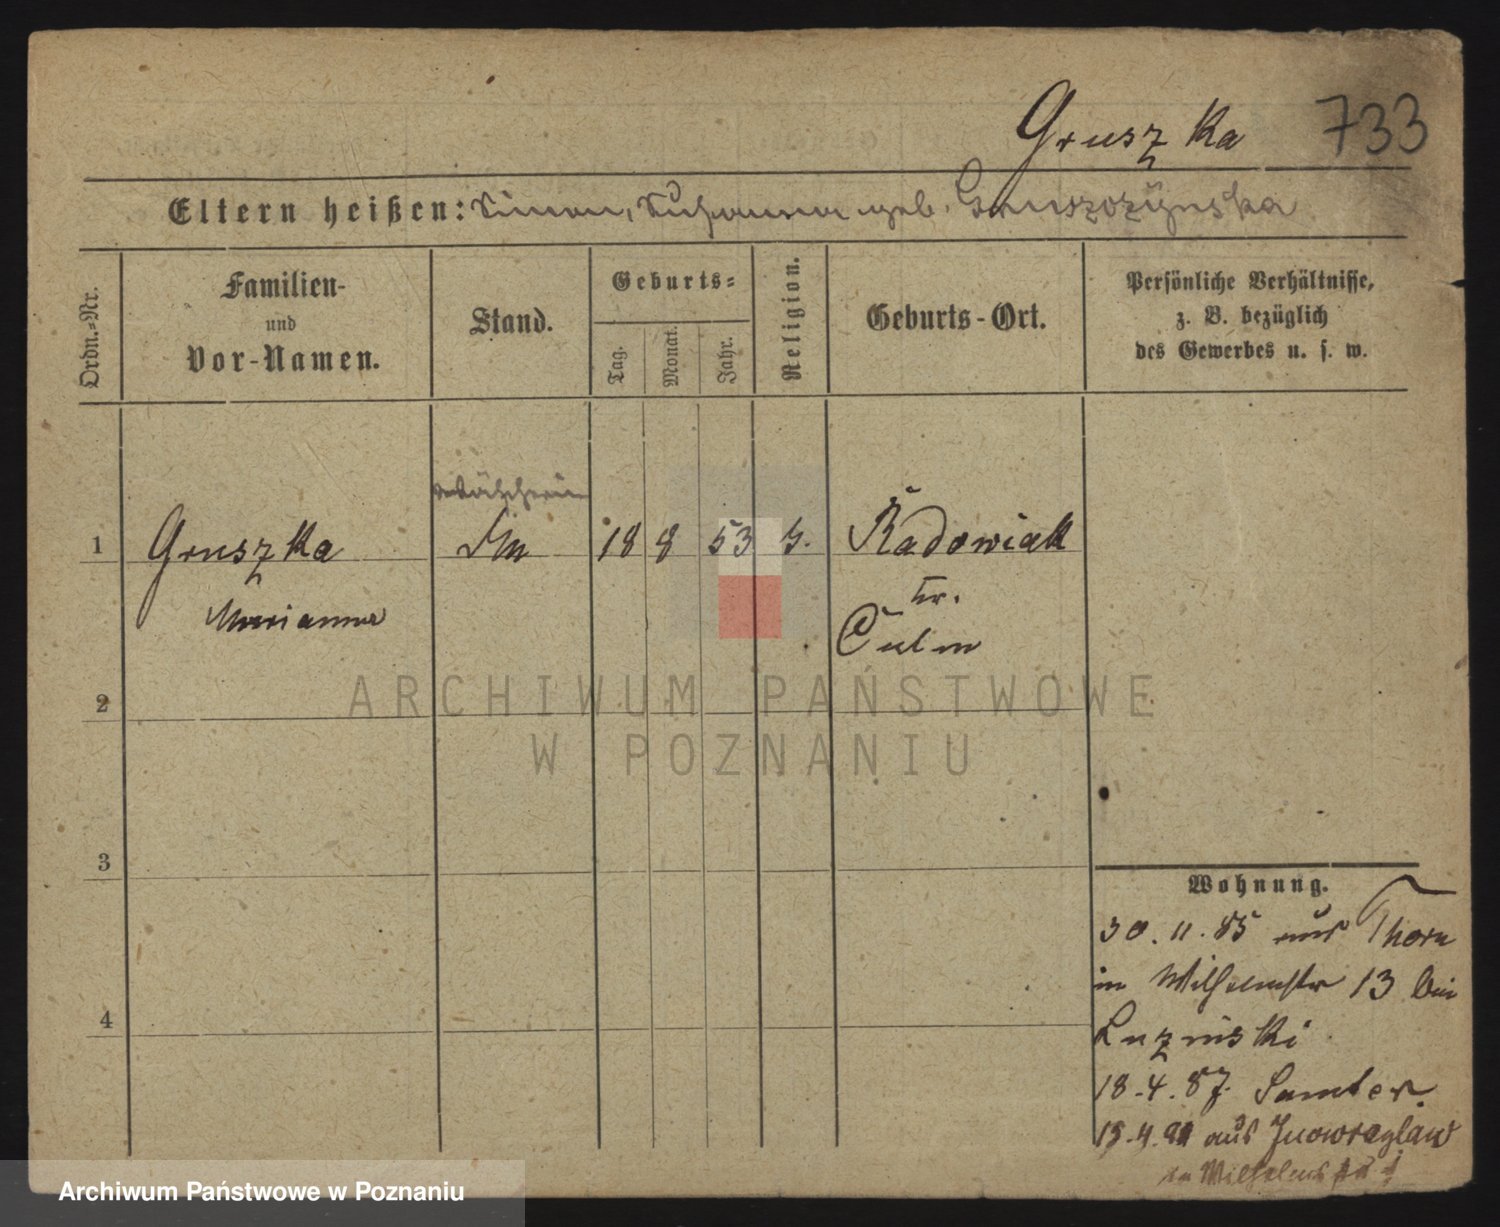 Gruszka 733
Eltern heißen: Simon, Susanna geb. Gruszczynska
Ordn.-Nr.
Familien-
und
Vor-Namen.
Stand.
Geburts-
Tag.
Monat.
Jahr.
Religion.
Geburts-Ort.
Persönliche Verhältnisse,
z. B. bezüglich
des Gewerbes u. s. w.
Wäscherin
1 Gruszka 18 8 53 Radowisk
Marianna
Kr.
Culm
2
3
4
Wohnung.
30.11.85 aus Thorn
in Wilhelmstr 13 bei
Luzinski
18.4.87. Samter.
aus Inowrazlaw
Wilhelmstr
ARCHIWUM PAŃSTWOWE
W POZNANIU
Archiwum Państwowe w Poznaniu